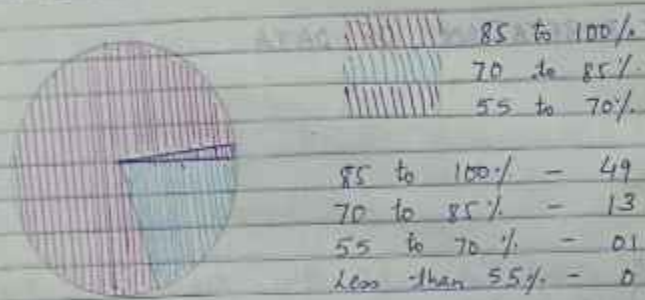 85 to 100%
70 to 85%
55 to 70%
85 to 100% - 49
70 to 85% - 13
55 to 70% - 01
Less than 55% - 0